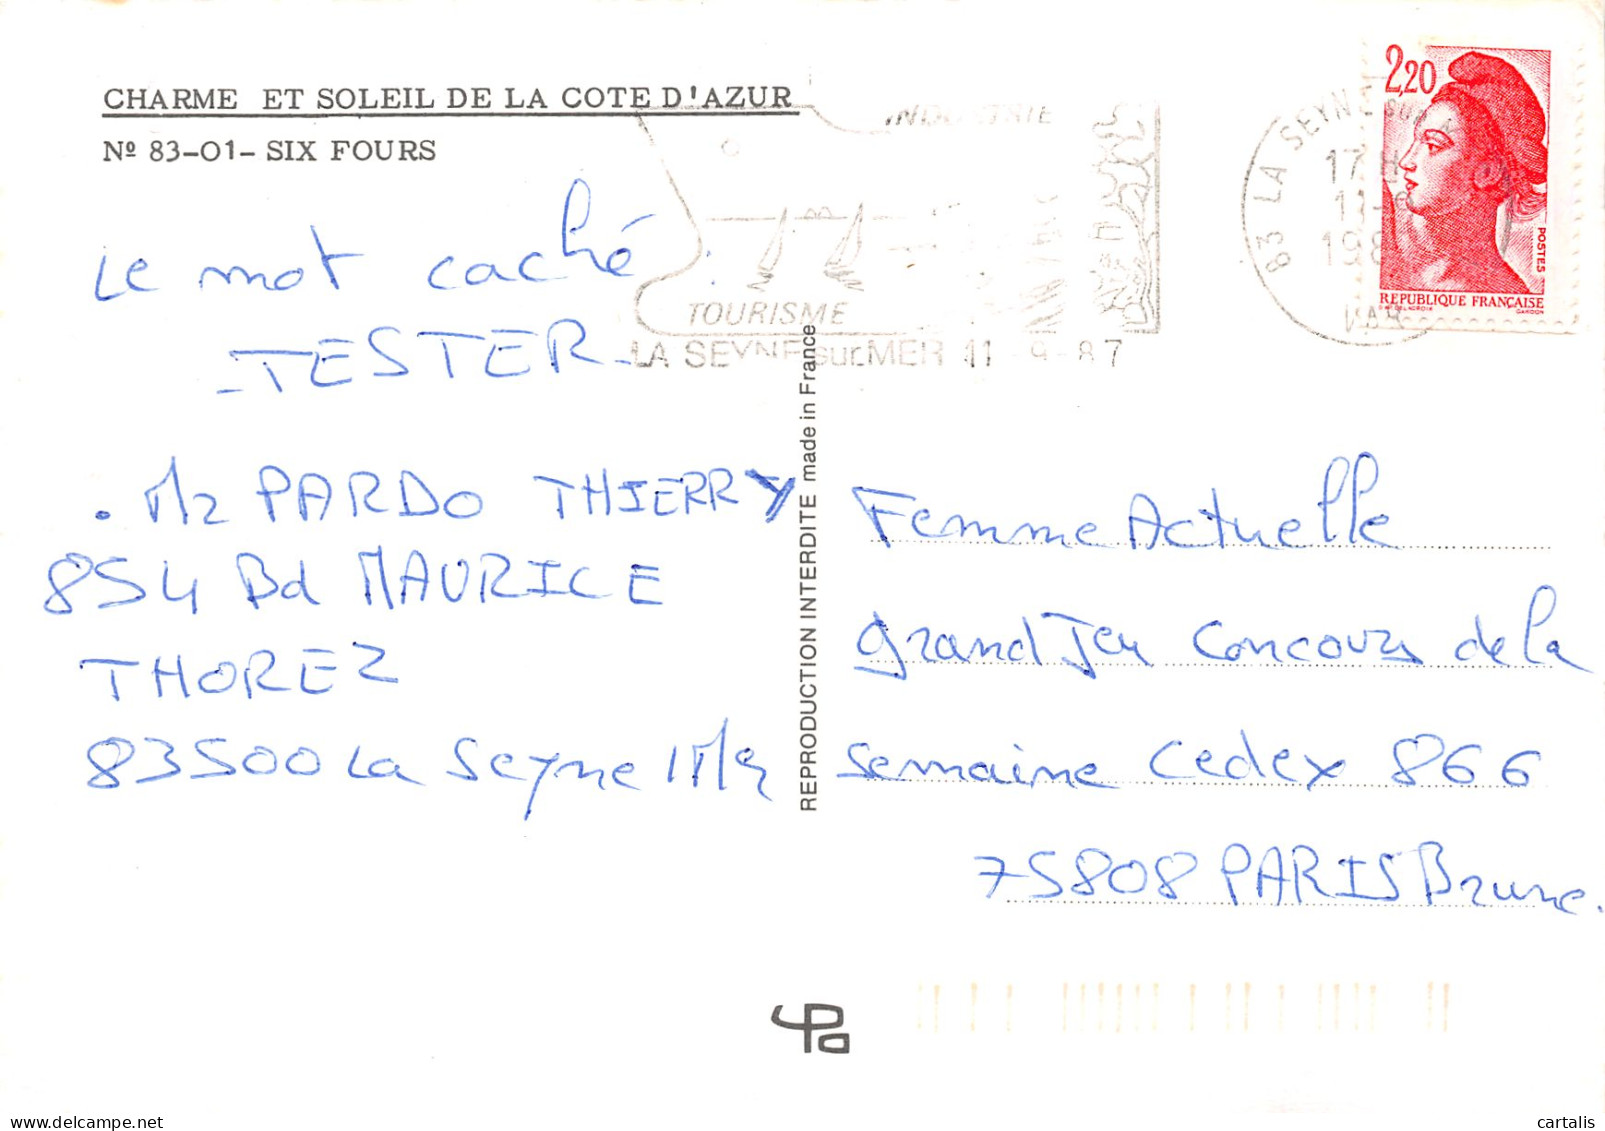 CHARME ET SOLEIL DE LA COTE D'AZUR
Nº 83-01- SIX FOURS
INDUSTRIE
TOURISME
LA SEYNE sur MER 11 - 9 - 87
83 LA SEYNE SUR M
17 H
11-9
198
VAR
2,20
POSTES
REPUBLIQUE FRANÇAISE
GANDON
Le mot caché :
- TESTER -
. Mr PARDO THIERRY
854 Bd MAURICE
THOREZ
83500 La Seyne s/Mer
REPRODUCTION INTERDITE made in France
Femme Actuelle
grand Jeu Concours de la
semaine Cedex 866
75808 PARIS Brune.
cartalis
delcampe.net